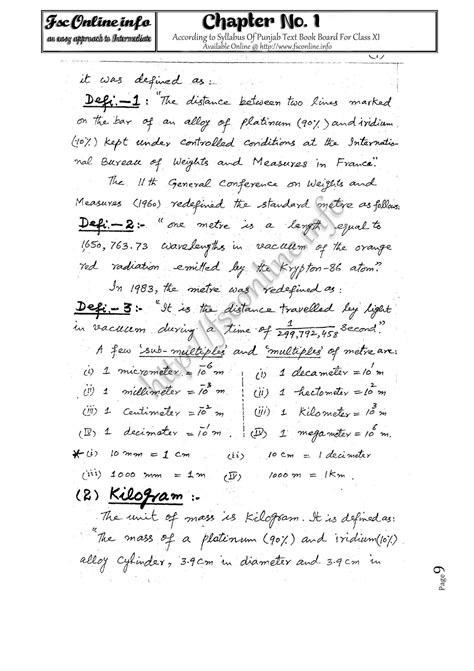 FscOnline.info
an easy approach to Intermediate
Chapter No. 1
According to Syllabus Of Punjab Text Book Board For Class XI
Available Online @ http://www.fsconline.info
(1)
it was defined as :-
Defi.-1 : "The distance between two lines marked
on the bar of an alloy of platinum (90%) and iridium
(10%) kept under controlled conditions at the Internatio-
nal Bureau of Weights and Measures in France".
The 11th General Conference on Weights and
Measures (1960) redefined the standard metre as follows:
Defi-2:- "one metre is a length equal to
1650,763.73 wavelengths in vacuum of the orange
red radiation emitted by the Krypton-86 atom."
In 1983, the metre was redefined as :
Defi-3:- "It is the distance travelled by light
in vacuum during a time of 1/299,792,458 second."
A few 'sub-multiples' and 'multiples' of metre are:
(i) 1 micrometer = 10⁻⁶ m (i) 1 decameter = 10¹ m
(ii) 1 millimeter = 10⁻³ m (ii) 1 hectometer = 10² m
(iii) 1 centimeter = 10⁻² m (iii) 1 Kilometer = 10³ m
(IV) 1 decimater = 10⁻¹ m. (IV) 1 megameter = 10⁶ m.
* (i) 10 mm = 1 cm (ii) 10 cm = 1 decimeter
(iii) 1000 mm = 1 m (IV) 1000 m = 1 Km.
(2) Kilogram :-
The unit of mass is Kilogram. It is defined as:
"The mass of a platinum (90%) and iridium (10%)
alloy cylinder, 3.9 cm in diameter and 3.9 cm in
http://fsconline.info
Page 9